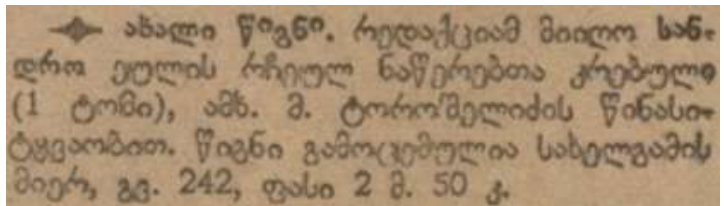 ახალი წიგნი. რედაქციამ მიიღო სან-
დრო ეულის რჩეულ ნაწერებთა კრებული
(1 ტომი), ამხ. მ. ტოროშელიძის წინასი-
ტყვაობით. წიგნი გამოცემულია სახელგამის
მიერ, გვ. 242, ფასი 2 მ. 50 კ.